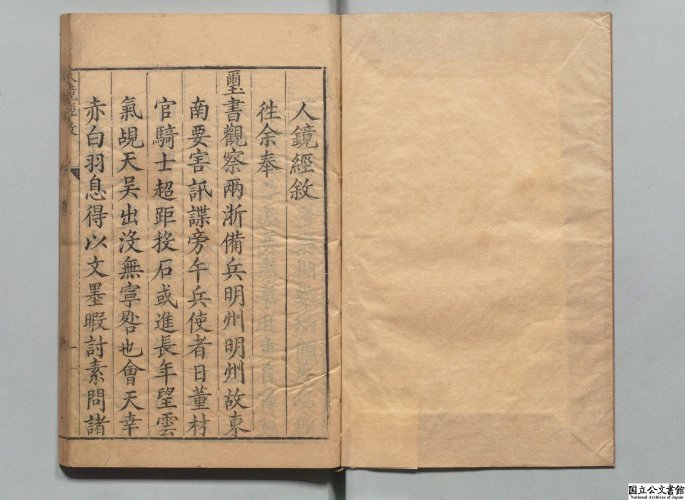 人鏡經敘
徃余奉
璽書觀察兩浙備兵明州明州故東
南要害訊諜旁午兵使者日董材
官騎士超距投石或進長年望雲
氣覘天吳出沒無寧晷也會天幸
赤白羽息得以文墨暇討素問諸
人鏡經敘
一
国立公文書館
National Archives of Japan